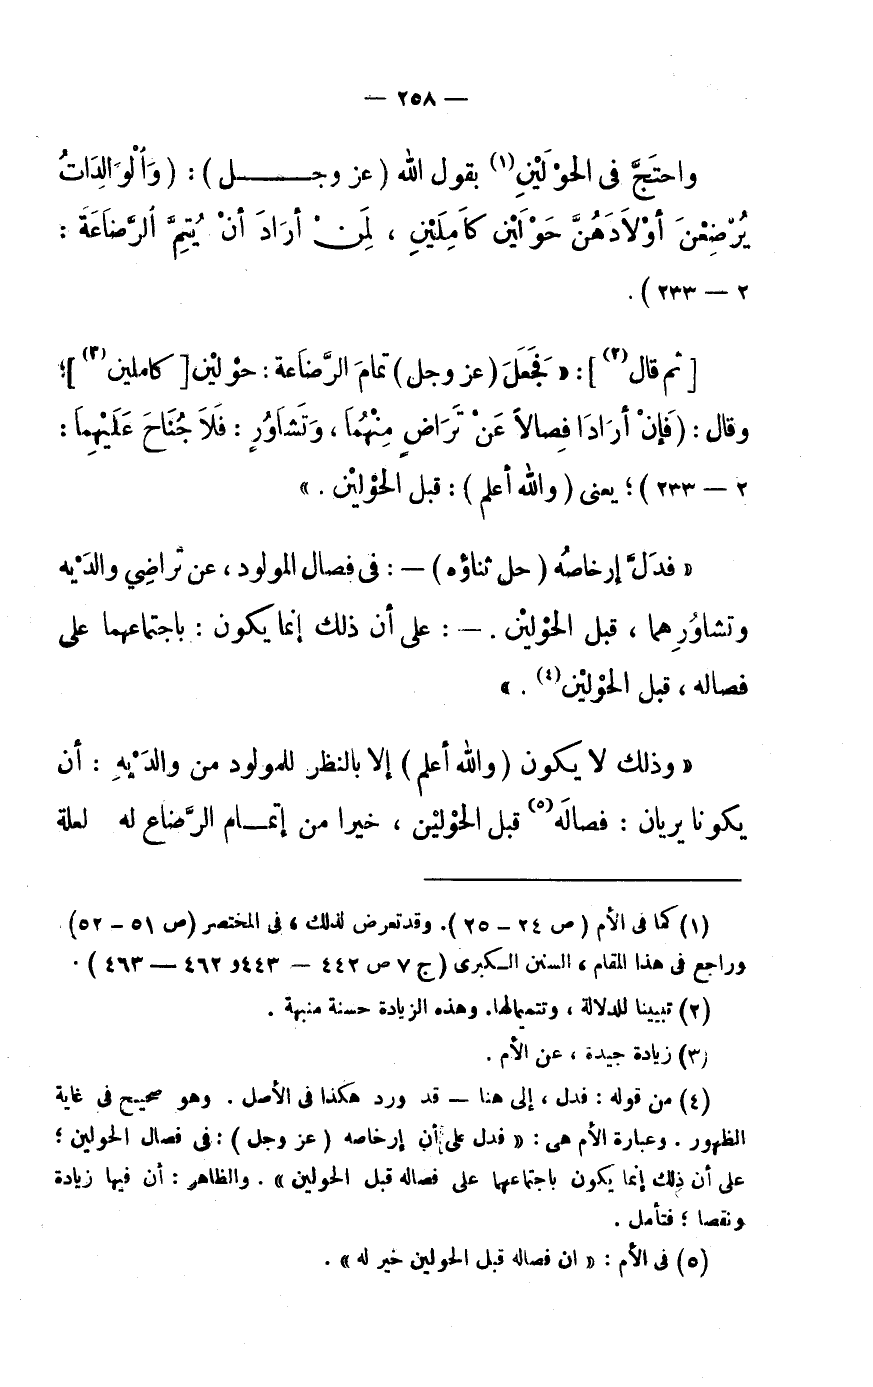 — ٢٥٨ —
واحتَجَّ فى الحوْلَيْنِ(١) بقول الله (عز وجـــــــل): (وَٱلْوَالِدَاتُ
يُرْضِعْنَ أَوْلَادَهُنَّ حَوْلَيْنِ كَامِلَيْنِ ، لِمَنْ أَرَادَ أَنْ يُتِمَّ ٱلرَّضَاعَةَ :
٢ — ٢٣٣ ) .
[ ثم قال(٢) ] : « فَجَعَلَ (عز وجل) تمامَ الرَّضَاعة : حوْليْن [ كاملين(٣) ]؛
وقال : ( فَإِنْ أَرَادَا فِصالاً عَنْ تَرَاضٍ مِنْهُمَا ، وَتَشَاوُرٍ : فَلاَ جُنَاحَ عَلَيْهِمَا :
٢ — ٢٣٣ ) ؛ يعنى ( والله أعلم ) : قبل الحوْليْن . »
« فدَلَّ إرخاصُه ( جل ثناؤه ) — : فى فصال المولود ، عن تَراضِي والدَيْه
وتشاوُرِهما ، قبل الحوْليْن . — : على أن ذلك إنما يكون : باجتماعهما على
فصاله ، قبل الحوْليْن(٤) . »
« وذلك لا يكون ( والله أعلم ) إلا بالنظر للمولود من والدَيْه : أن
يكونا يريان : فصالَه(٥) قبل الحوْليْن ، خيرا من إتمـام الرَّضاع له لعلة
(١) كما فى الأم ( ص ٢٤ – ٢٥ ) . وقد تعرض لذلك ، فى المختصر (ص ٥١ – ٥٢) .
وراجع فى هذا المقام ، السنن الـكبرى ( ج ٧ ص ٤٤٢ – ٤٤٣ و ٤٦٢ — ٤٦٣ ) .
(٢) تبيينا للدلالة ، وتتميما لها. وهذه الزيادة حسنة منبهة .
(٣) زيادة جيدة ، عن الأم .
(٤) من قوله : فدل ، إلى هنا – قد ورد هكذا فى الأصل . وهو صحيح فى غاية
الظهور . وعبارة الأم هى : « فدل على أن إرخاصه ( عز وجل ) : فى فصال الحولين ؛
على أن ذلك إنما يكون باجتماعهما على فصاله قبل الحولين » . والظاهر : أن فيها زيادة
ونقصا ؛ فتأمل .
(٥) فى الأم : « ان فصاله قبل الحولين خير له » .